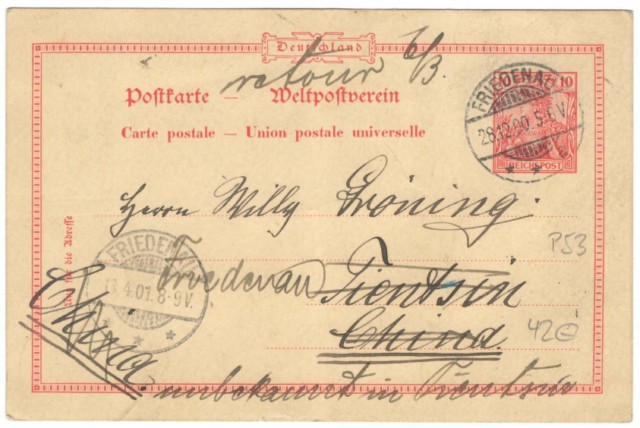 Deutschland
retour 6/3.
Postkarte — Weltpostverein
Carte postale — Union postale universelle
10
REICHSPOST
FRIEDENAU
28.12.00. 5-6 V.
Herrn Willy Gröning.
P53
Nur für die Adresse
FRIEDENAU
4.01. 8-9V.
Friedenau
Tientsin
China
42
China
unbekannt in Tientsin